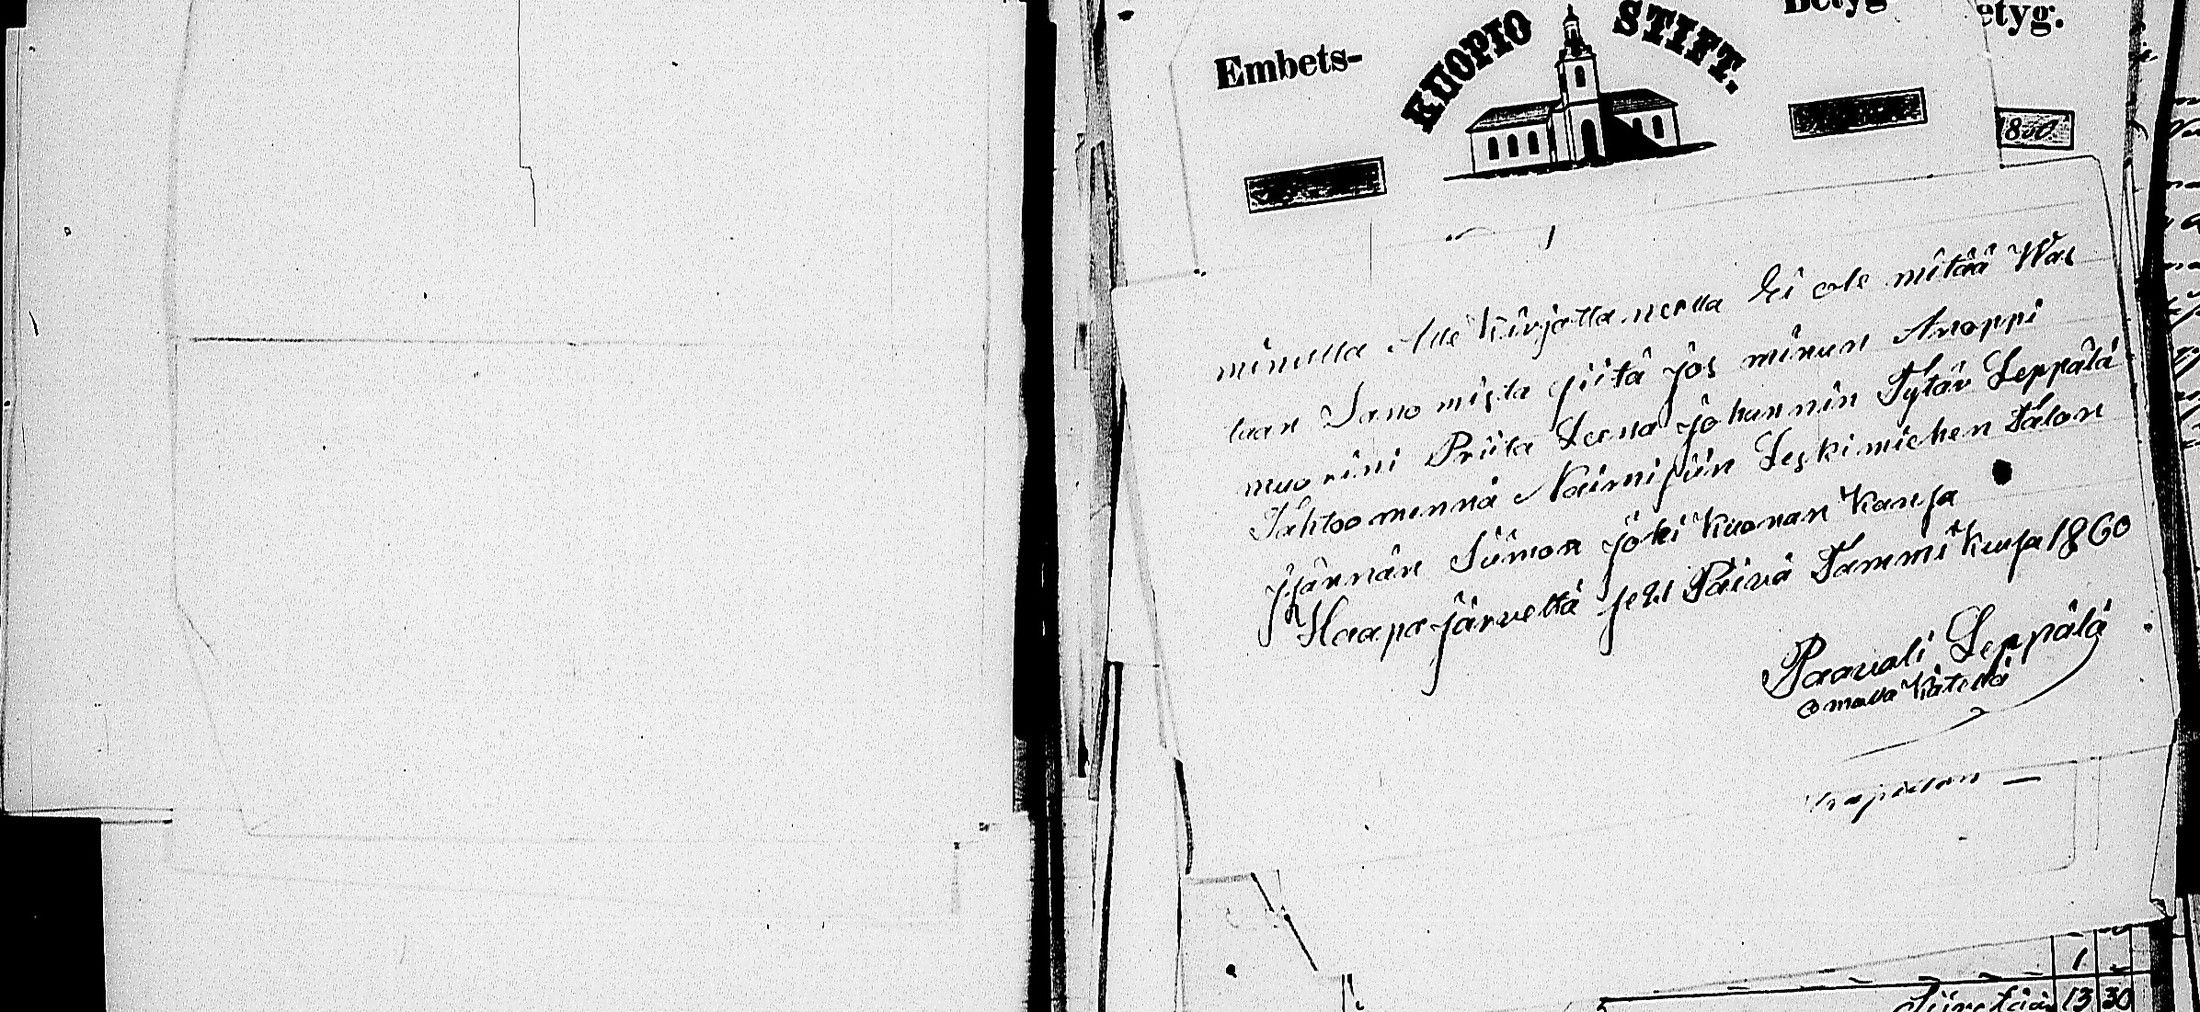 Betyg
etyg.
Embets-
KUOPIO STIFT.
1860
minulla Alle Kirjottanella Ei ole mitää Was
taan Sano mista siitä jos minun Anoppi
muorini Priita Leena johannin Tytär Leppälä
Tahtoo mennä Naimisiin Leski miehen Talon
jsännän Siimon joki Kuonan Kansa
Haapajärveltä se Päivä Tammi Kuusa 1860
Paavali Leppälä
omalla Kätellä
1
13 30